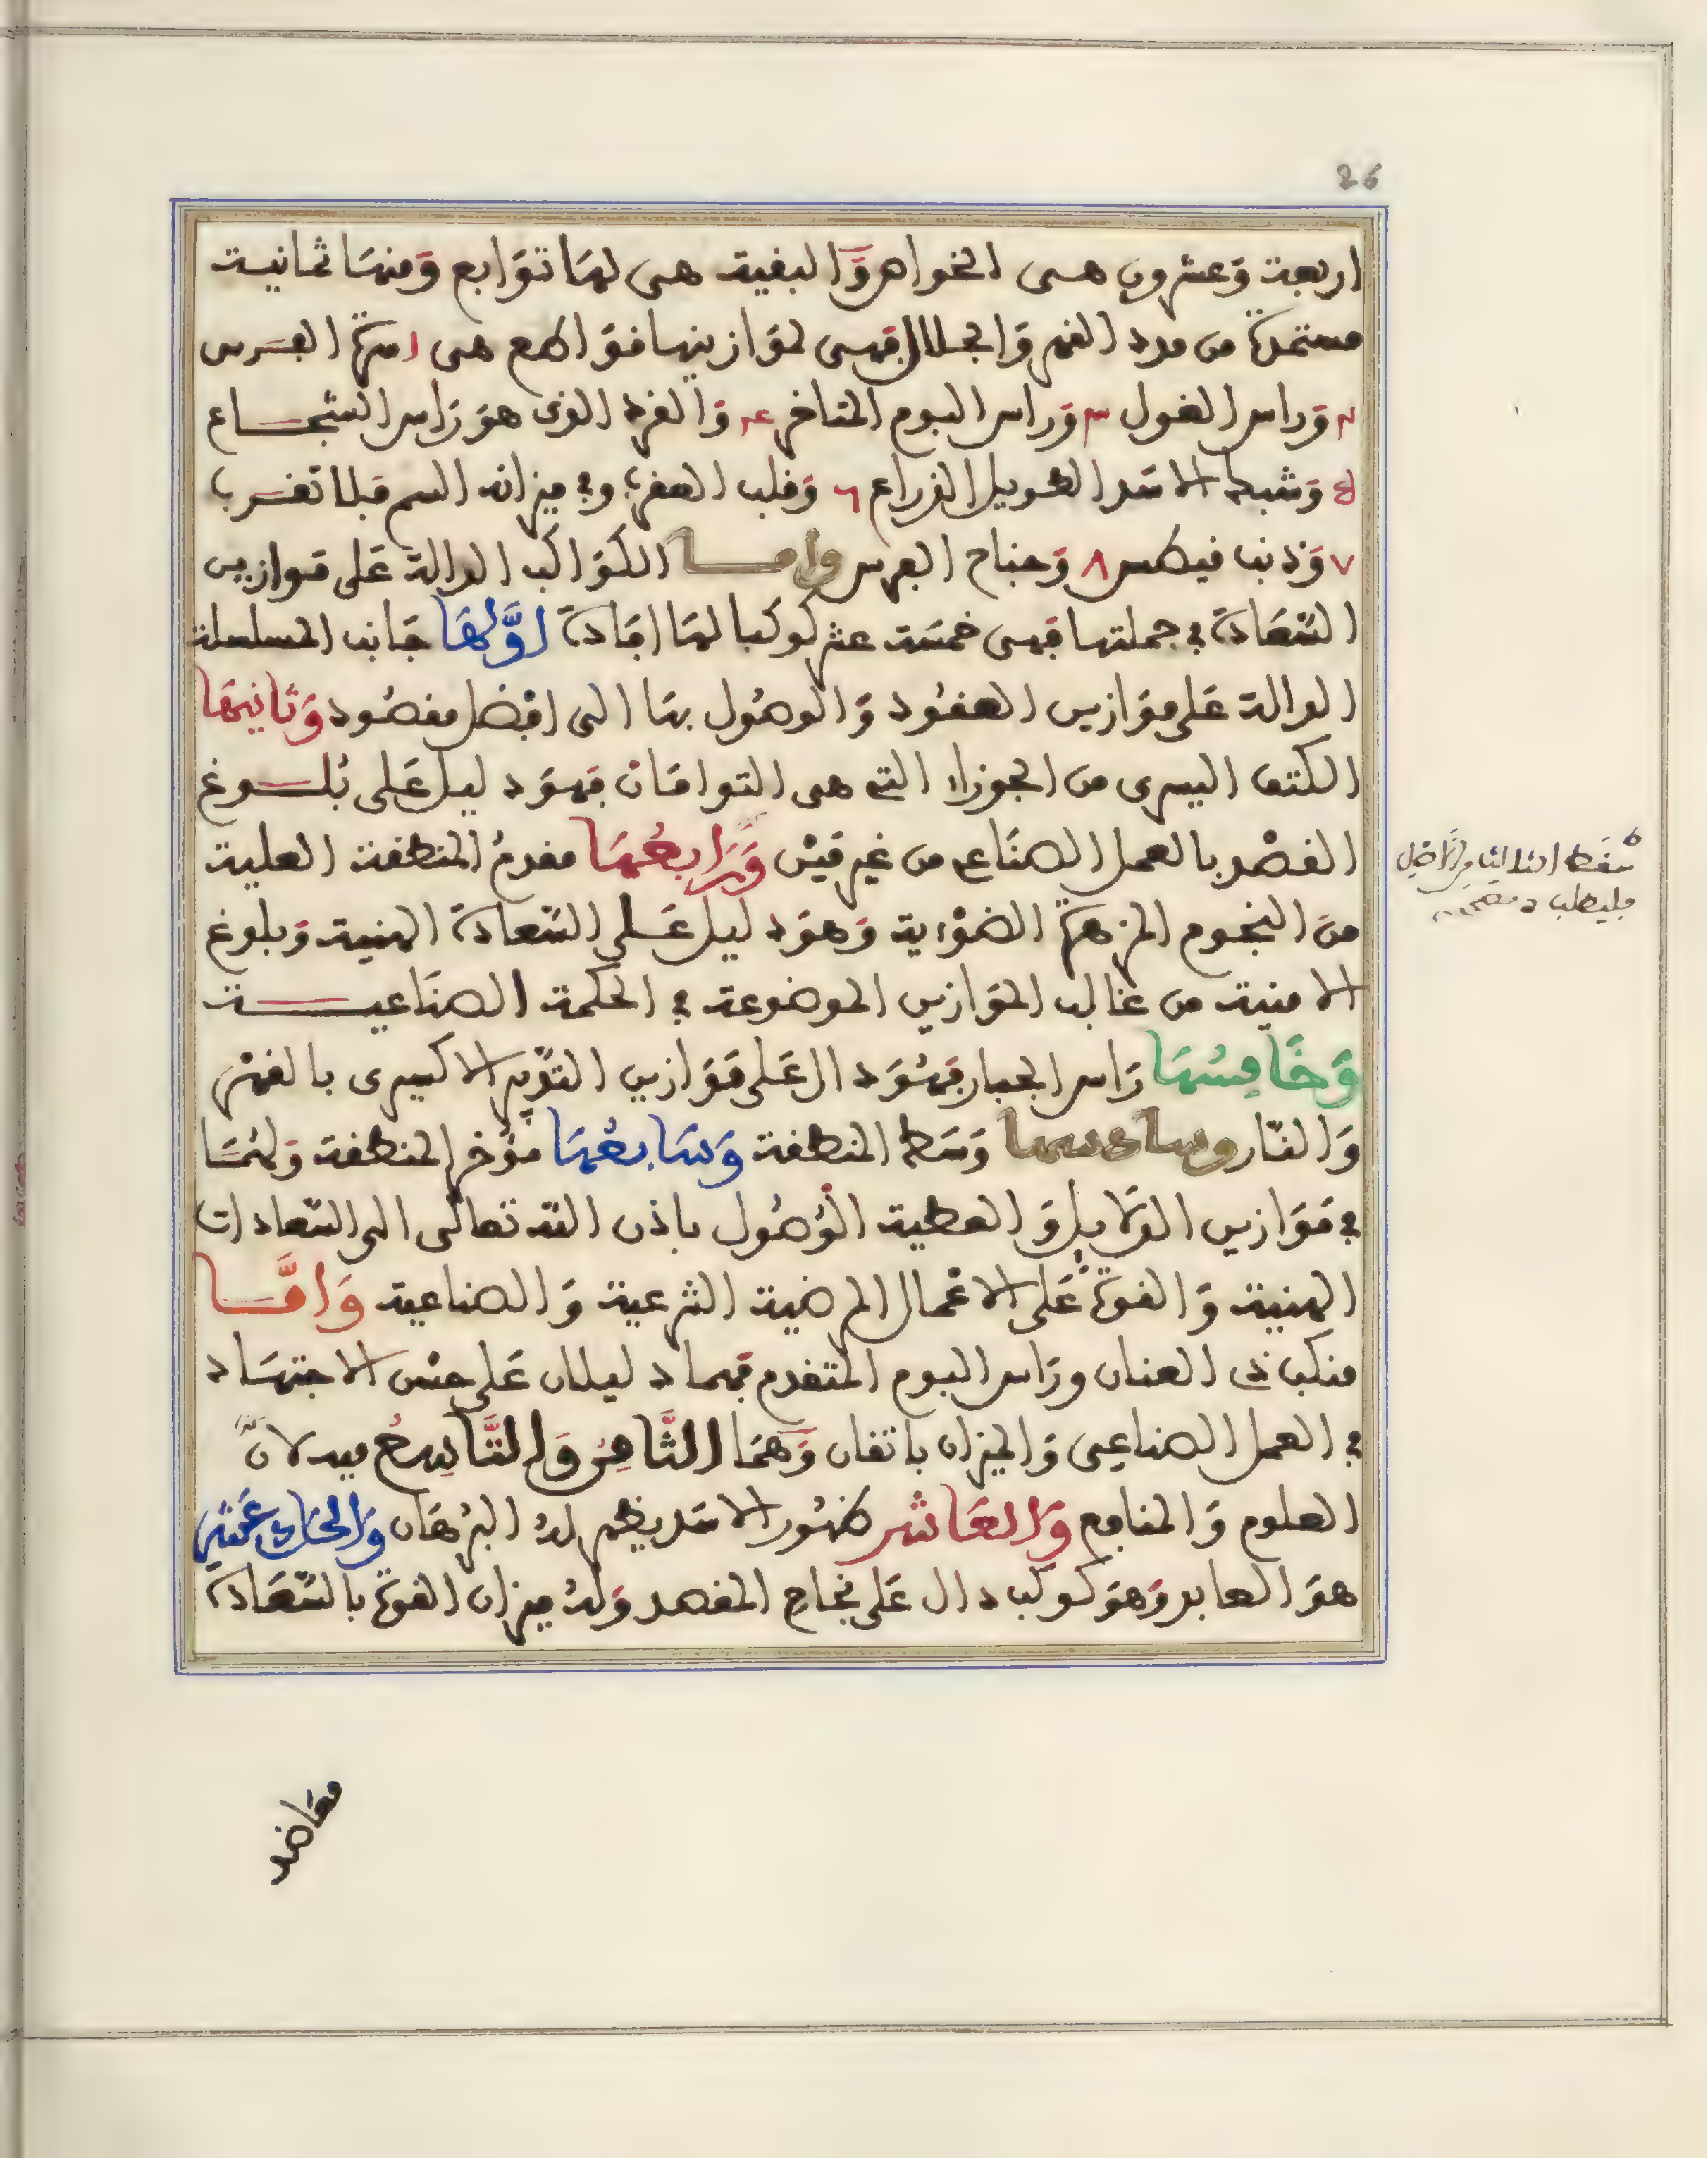 26
اربعة وَعشرون هى الخواهر وَالبقية هى لهَا تَوَابع وَمنهَا ثمانية
مستمدّة من مدد القهر وَالجلال فهى لمَوَازينها قوَاطع هى ١ مرَّة الفَرس
٢ وَراس الغول ٣ وَراس البوم المتاخر ٤ وَالفرد الذى هوَ رَاس الشجاع
٥ وَشبه الاسَد الطويل الذراع ٦ وَقلب العقرب وفى ميزانه السم فلا تقرب
٧ وَذنب قيطس ٨ وَجناح الفرس واما الكوَاكب الدالة عَلى موازين
السّعَادَة فى جملتها فهى خمسَة عشر كوكبا لهَا اِفَادَة اوَّلهَا جَانب المسلسلة
الدالة عَلى موَازين العقُود وَالوصُول بهَا الى افضل مقصُود وَثانيهَا
الكتف اليسرى من الجوزاء التى هى التوامَان فهوَ دليل عَلى بُلوغ
القصْد بالعمل الصنَاعى من غير مَيْن وَرَابعُهَا مقدمُ المنطقة العلية
منَ النجوم المزهرَة الضوْءية وَهوَ دليل عَلى السَّعادَة الهنية وَبلوغ
الامنية من غالب الموَازين الموضوعة فى الحكمة الصنَاعية
وَخَامِسُهَا رَاس الجبار فهُوَ دال عَلى مَوَازين التدّبير الاكسيرى بالقهْر
وَالنّار وسادسها وَسَط المنطقة وَسَابعُهَا مؤخر المنطقة وَلهُمَا
فى مَوَازين الدلايل وَالعطية الوُصُول باذن الله تعالَى الى السّعادات
الهنية وَالقوة عَلى الاعْمال المرضية الشرعية وَالصناعية وَامَّا
منكب ذى العنان ورَاس البوم المتقدم فهما دليلان عَلى حسْن الاجتهَاد
فى العمل الصناعِى وَالميزان باتقان وَهمَا الثَّامِن وَالتَّاسِعُ ميدلانّ
العلوم وَالمنافع وَالعَاشر ظهُور الاسَد يظهر لهُ البُرهَان وَالحَادى عَشر
هوَ العابد وَهوَ كوكب دال عَلى نجَاح المقصد وَلهُ ميزان القوة بالسّعَادَة
سَقط الثالث مِن الاصل
فليطلب
مقاضد